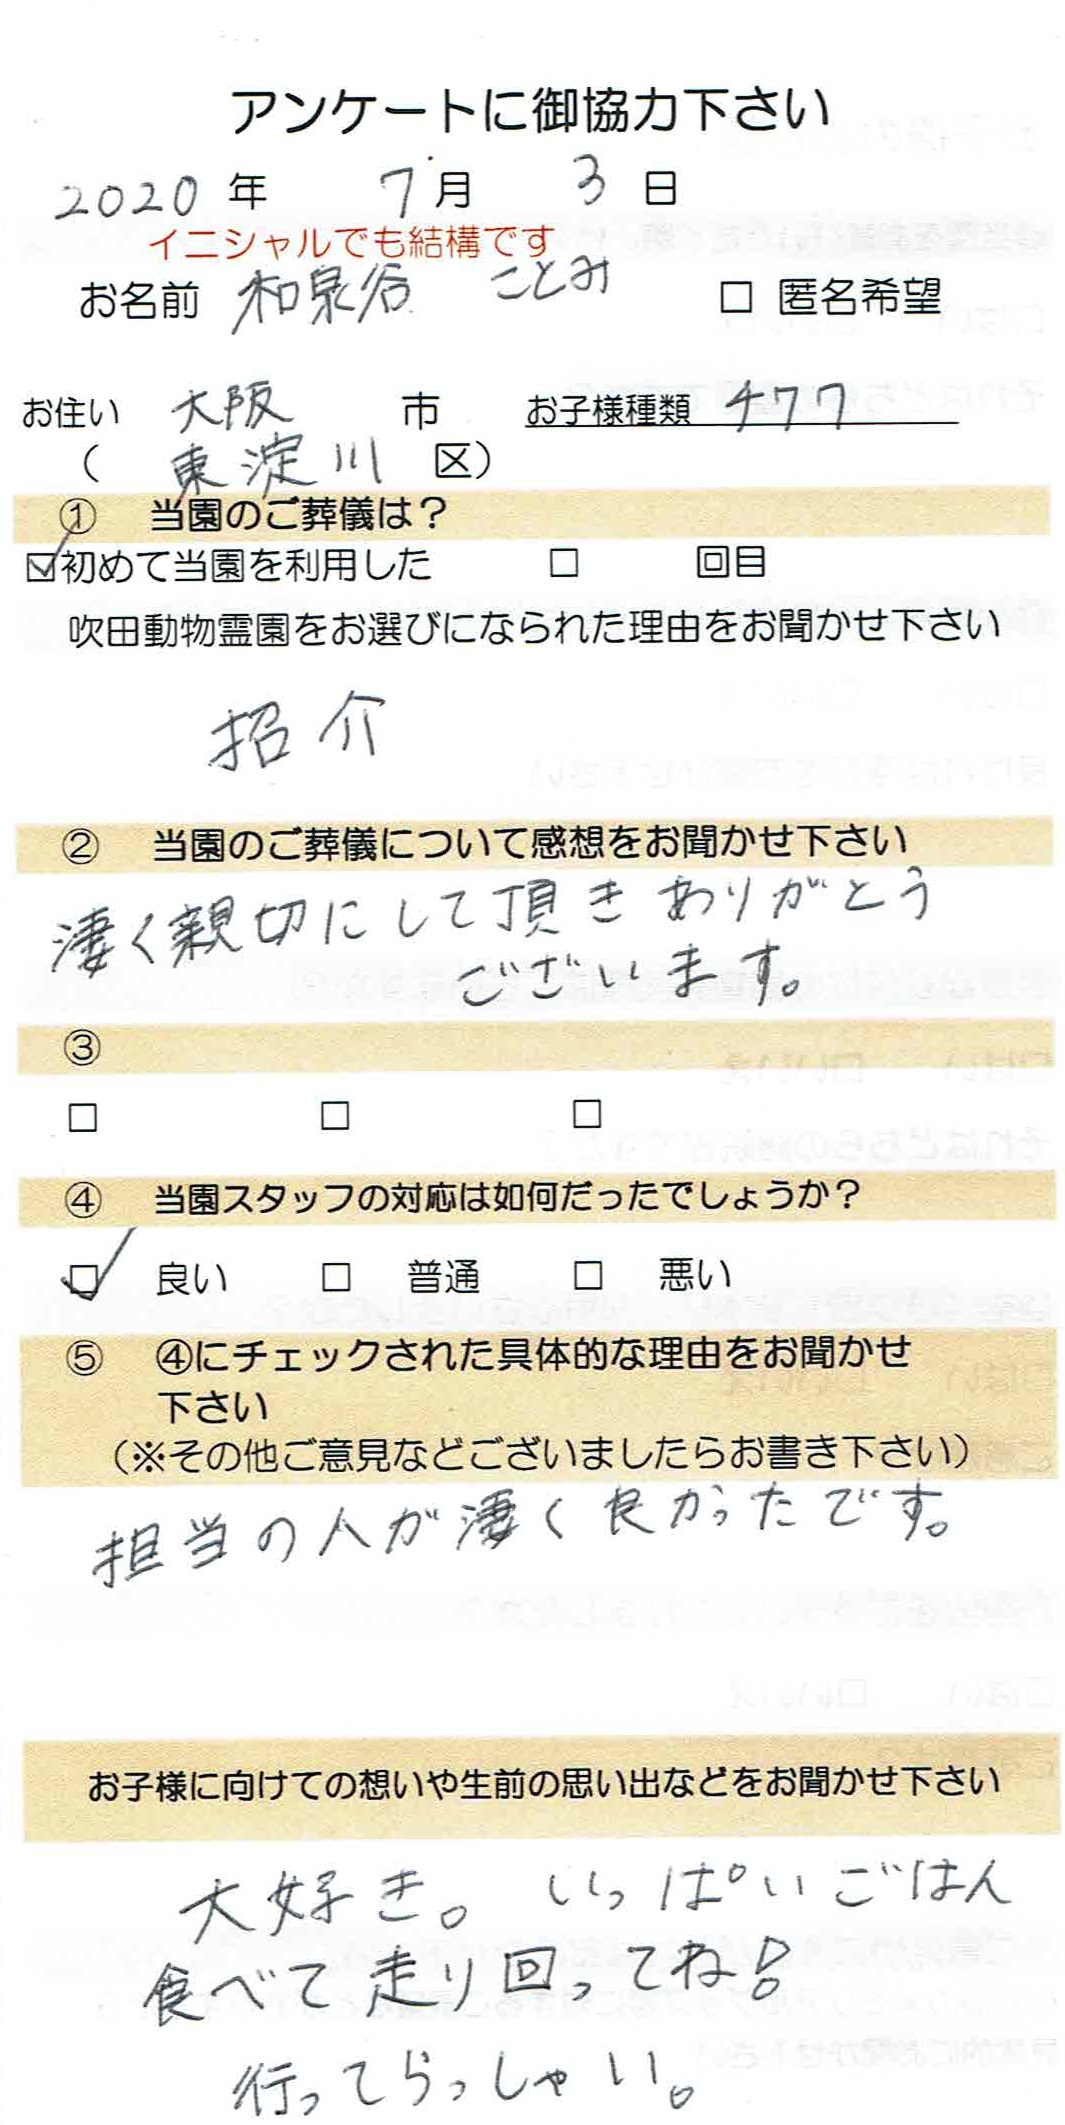 アンケートに御協力下さい
2020 年 7 月 3 日
イニシャルでも結構です
お名前 和泉谷 ことみ □ 匿名希望
お住い 大阪 市 お子様種類 チワワ
( 東淀川 区)
① 当園のご葬儀は？
☑初めて当園を利用した □ 回目
吹田動物霊園をお選びになられた理由をお聞かせ下さい
招介
② 当園のご葬儀について感想をお聞かせ下さい
凄く親切にして頂きありがとう
ございます。
③
□ □ □
④ 当園スタッフの対応は如何だったでしょうか？
☑ 良い □ 普通 □ 悪い
⑤ ④にチェックされた具体的な理由をお聞かせ
下さい
（※その他ご意見などございましたらお書き下さい）
担当の人が凄く良かったです。
お子様に向けての想いや生前の思い出などをお聞かせ下さい
大好き。いっぱいごはん
食べて走り回ってね!
行ってらっしゃい。